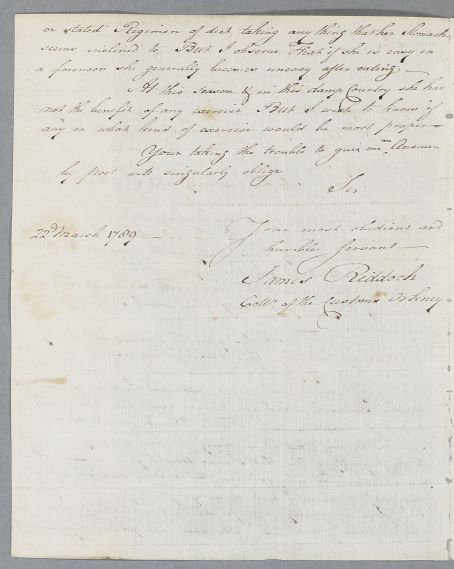 or stated Regimen of diet, taking any thing that her Stomach
seems inclined to But I observe That if she is easy in
a forenoon she generally becomes uneasy after eating –
At this Season & in this damp Country she has
not the benefit of any exercise But I wish to know if
any or what kind of exercise would be most proper –
Your taking the trouble to give me an Answer
by post will singularly oblige
Sir
Your most obedient and
22d March 1789 –
humble Servant –
James Riddoch
Collr. of the Customs Orkney